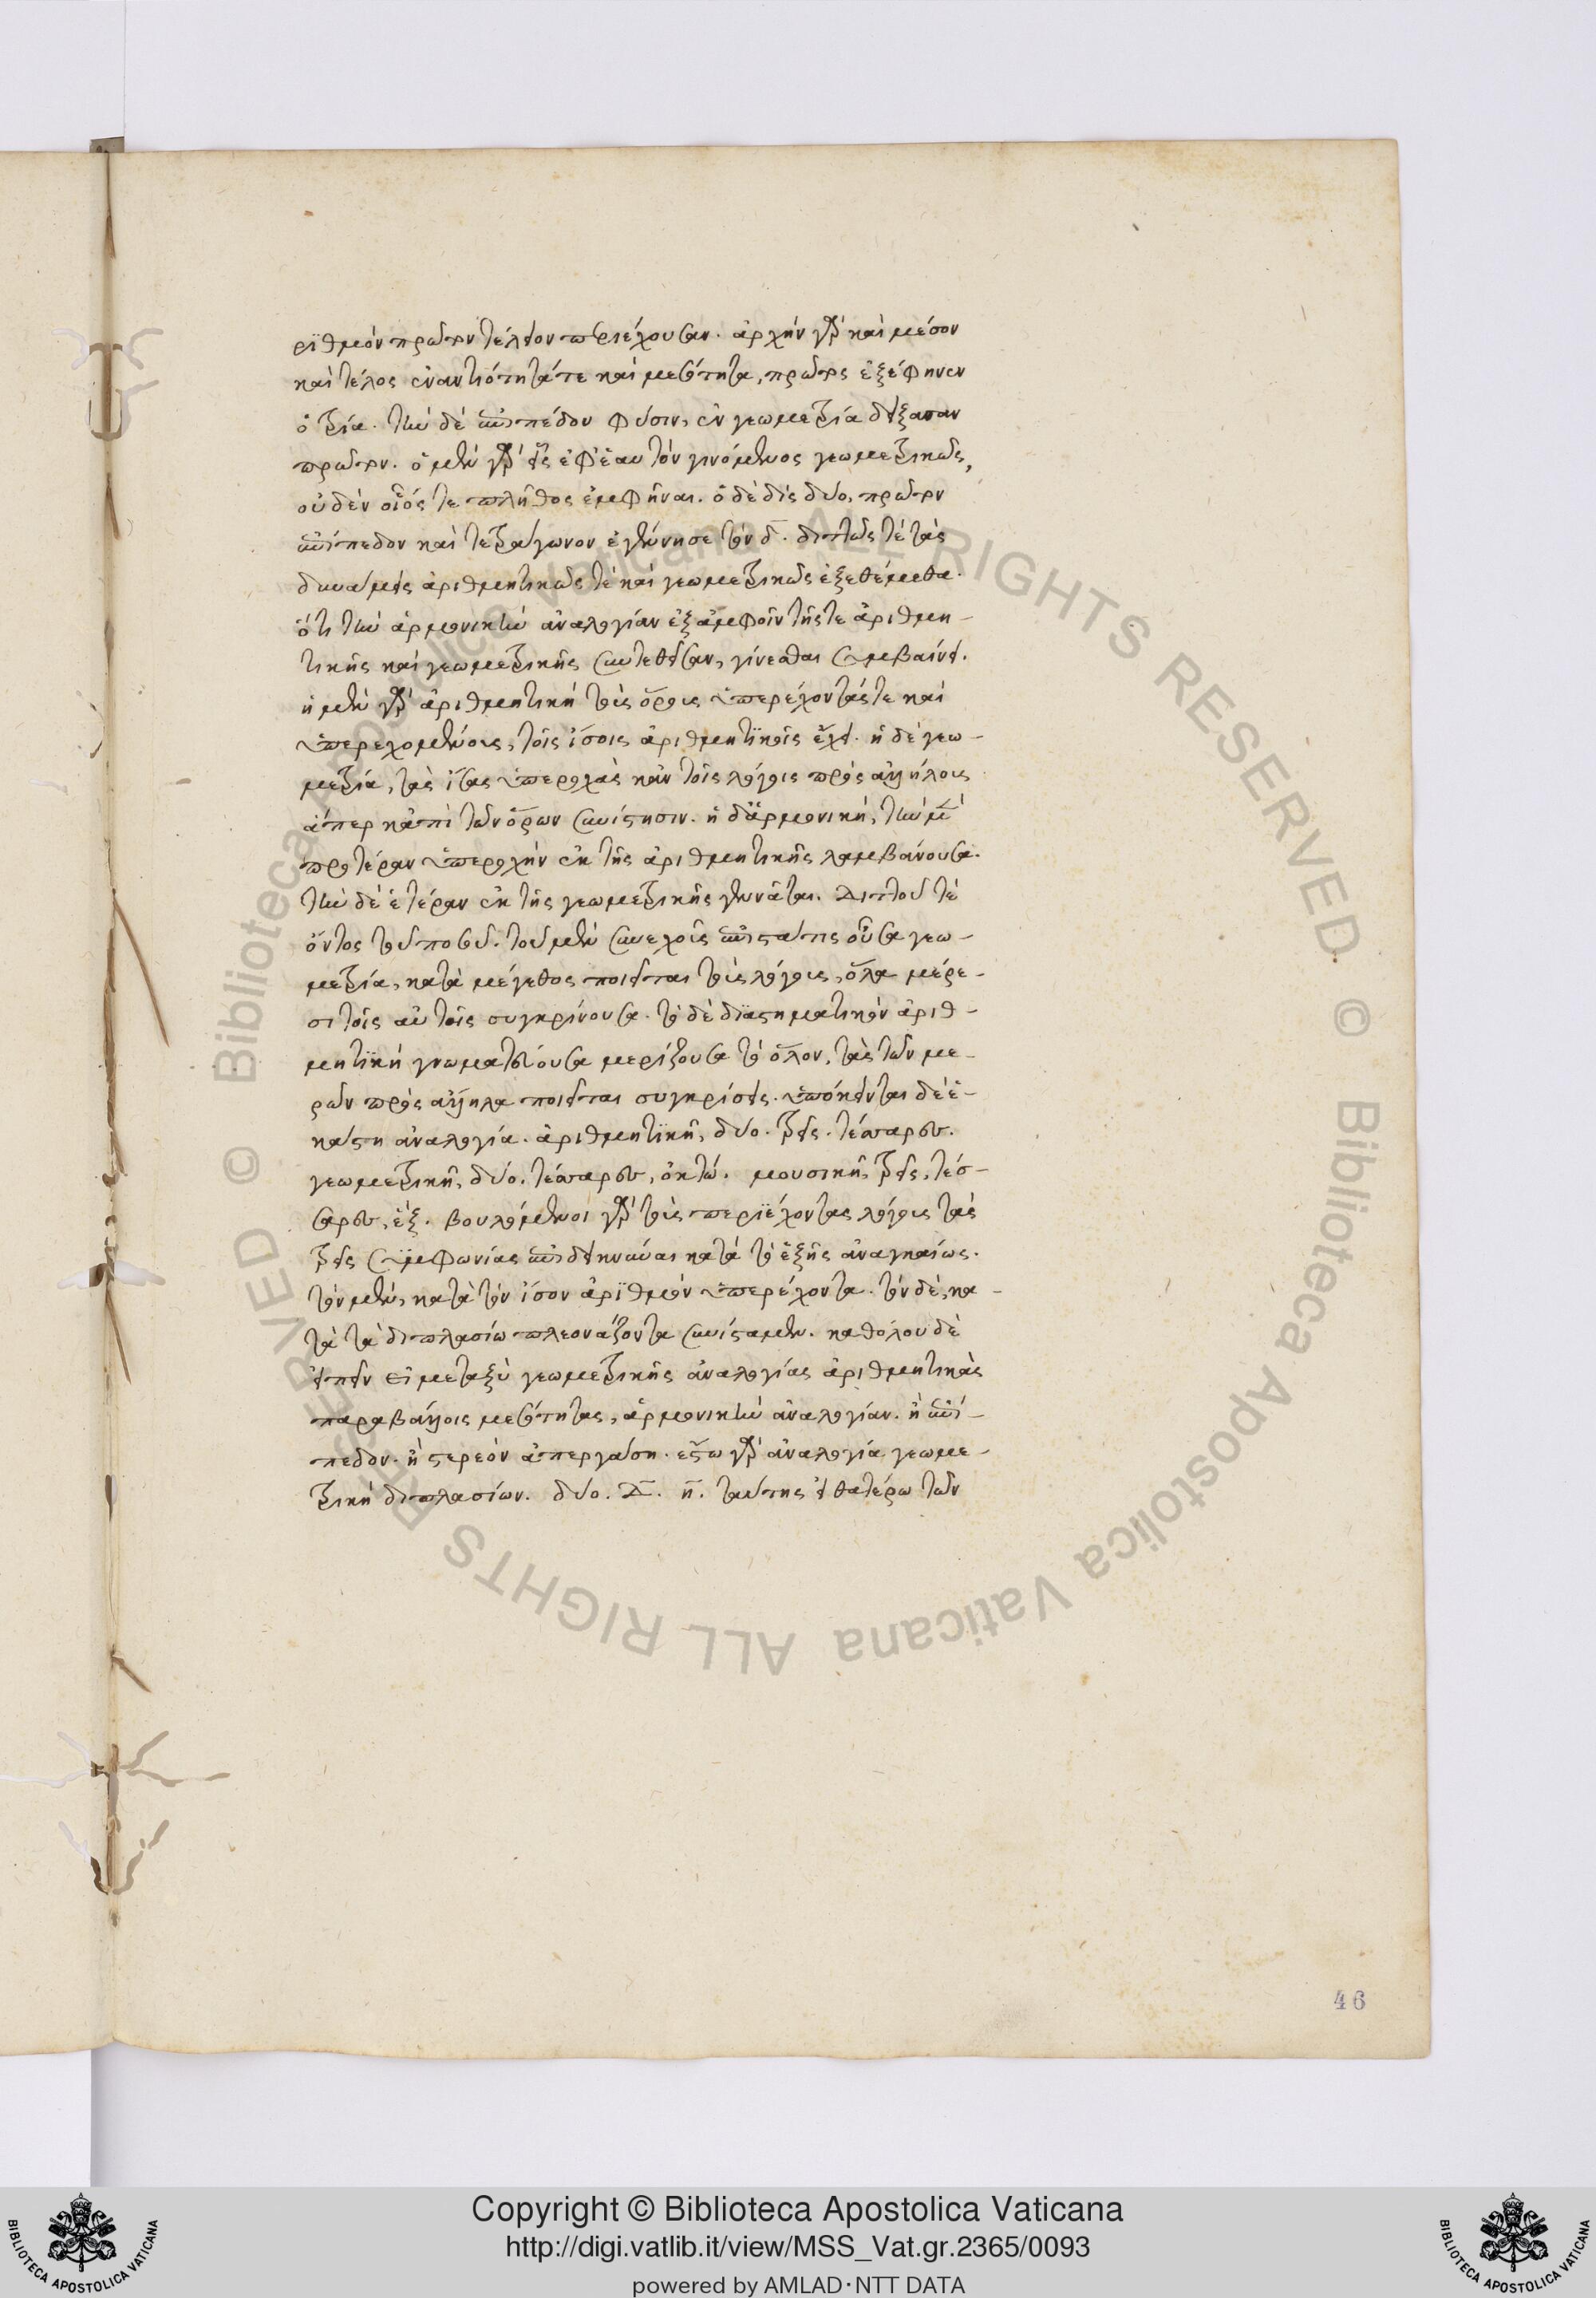 ρϊθμὸν πρῶτον τέλειον περιέχουσαν. ἀρχὴν γὰρ καὶ μέσον
καὶ τέλος ἐναντιότητά τε καὶ μεσότητα, πρῶτος ἐξέφηνεν
ὁ τρία. τὴν δὲ ἐπιπέδου φύσιν, ἐν γεωμετρία δείξασαν
πρῶτον. ὁ μὲν γὰρ εἷς ἐφ' ἑαυτὸν γινόμενος γεωμετρικῶς,
οὐδὲν οἷός τε πλῆθος ἐμφῆναι. ὁ δὲ δὶς δύο, πρῶτον
ἐπίπεδον καὶ τετράγωνον ἐγέννησε τὸν δ̅. διπλῶς τὲ τὰς
δυνάμεις ἀριθμητικῶς τὲ καὶ γεωμετρικῶς ἐξεθέμεθα.
ὅτι τὴν ἁρμονικὴν ἀναλογίαν ἐξ ἀμφοῖν τῆς τε ἀριθμη-
τικῆς καὶ γεωμετρικῆς συντεθεῖσαν, γίνεσθαι συμβαίνει.
ἡ μὲν γὰρ ἀριθμητικὴ τοὺς ὅρους ὑπερέχοντάς τε καὶ
ὑπερεχομένους, τοῖς ἴσοις ἀριθμητϊκοῖς ἔχει. ἡ δὲ γεω-
μετρία, τὰς ἴσας ὑπεροχὰς κἀν τοῖς λόγοις πρὸς ἀλλήλους
ἅπερ κἀπὶ τῶν ὅρων συνίστησιν. ἡ δ' ἁρμονικὴ, τὴν μὲν
προτέραν ὑπεροχὴν ἐκ τῆς ἀριθμητικῆς λαμβάνουσα.
τὴν δὲ ἑτέραν ἐκ τῆς γεωμετρικῆς γεννᾶται. Διπλοῦ τὲ
ὄντος τοῦ ποσοῦ. τοῦ μὲν συνεχοῦς ἐπιστάτις οὖσα γεω-
μετρία, κατὰ μέγεθος ποιεῖται τοὺς λόγους, ὅλα μέρε-
σι τοῖς αὐτοῖς συγκρίνουσα. τὸ δὲ διαστηματικὸν ἀριθ-
μητϊκὴ γνωματεύουσα μερίζουσα τὸ ὅλον, τὰς τῶν με-
ρῶν πρὸς ἄλληλα ποιεῖται συγκρίσεις. ὑπόκεινται δὲ ἑ-
κάστη ἀναλογία. ἀριθμητϊκῆ, δύο. τρεῖς. τέσσαρες.
γεωμετρικῆ, δύο. τέσσαρες, ὀκτώ. μουσικῆ, τρεῖς, τέσ-
σαρες, ἕξ. βουλόμενοι γὰρ τοὺς περϊέχοντας λόγους τὰς
τρεῖς συμφωνίας ἐπιδεικνύναι κατὰ τὸ ἑξῆς ἀναγκαίως.
τὸν μὲν, κατὰ τὸν ἴσον ἀρϊθμὸν ὑπερέχοντα. τὸν δὲ, κα-
τὰ τὰ διπλασίω πλεονάζοντα συνίσταμεν. καθόλου δὲ
εἰπεῖν εἰ μεταξὺ γεωμετρικῆς ἀναλογίας ἀριθμητικὰς
παραβάλλοις μεσότητας, ἁρμονικὴν ἀναλογίαν. ἢ ἐπί-
πεδον. ἢ στερεὸν ἀπεργάση. ἔστω γὰρ ἀναλογία γεωμε-
τρικὴ διπλασίων. δύο. Δ̅. η̅. ταύτης εἰ θατέρω τῶν
46
Copyright © Biblioteca Apostolica Vaticana
http://digi.vatlib.it/view/MSS_Vat.gr.2365/0093
powered by AMLAD·NTT DATA